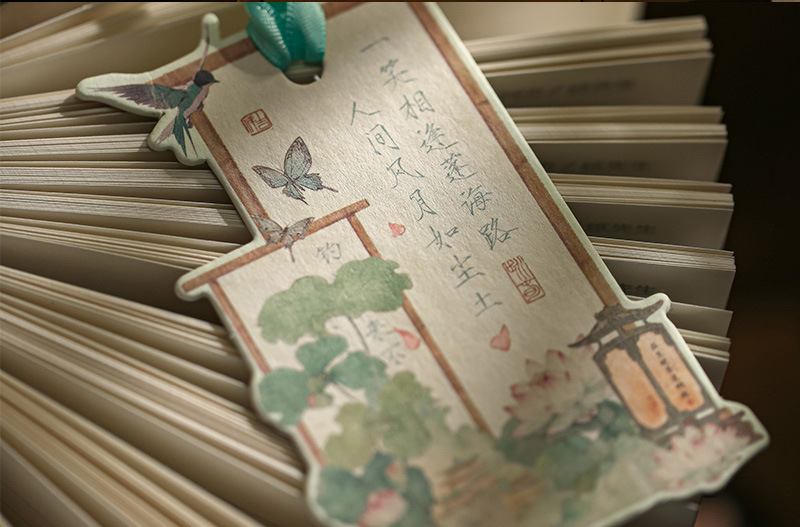 一笑相逢蓬海路
人间风月如尘土
钓